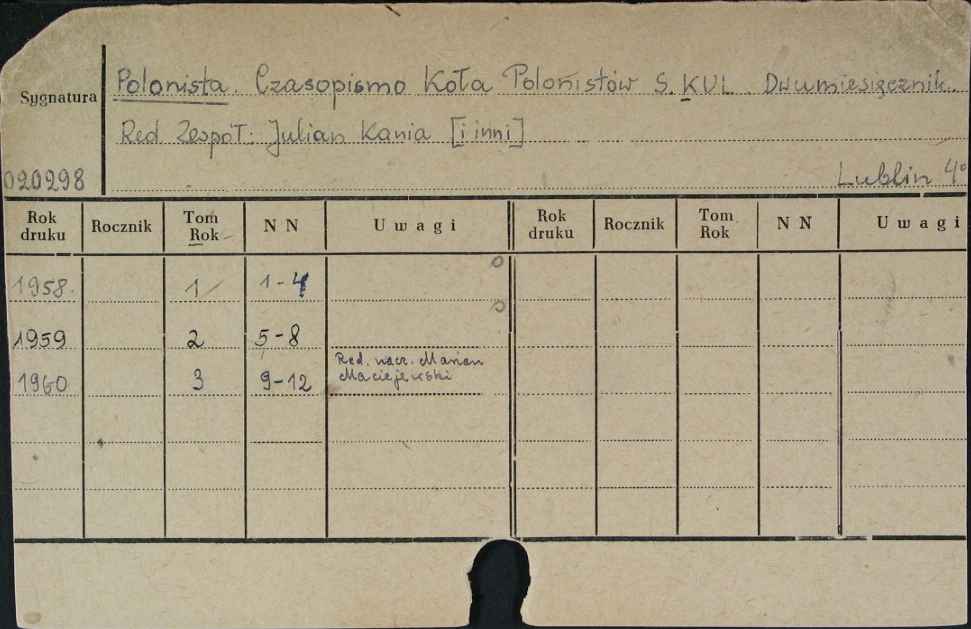 Polonista. Czasopismo Koła Polonistów S. KUL. Dwumiesięcznik.
Sygnatura
Red. Zespół: Julian Kania [i inni]
020298
Lublin 4°
Rok druku Rocznik Tom Rok N N Uwagi Rok druku Rocznik Tom Rok N N Uwagi
1958. 1 1-4
1959 2 5-8
Red. nacz. Marian
1960 3 9-12 Maciejewski